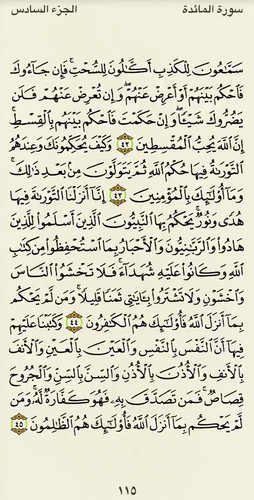 سورة المائدة الجزء السادس
سَمَّٰعُونَ لِلْكَذِبِ أَكَّٰلُونَ لِلسُّحْتِ ۚ فَإِن جَآءُوكَ
فَٱحْكُم بَيْنَهُمْ أَوْ أَعْرِضْ عَنْهُمْ ۖ وَإِن تُعْرِضْ عَنْهُمْ فَلَن
يَضُرُّوكَ شَيْـًٔا ۖ وَإِنْ حَكَمْتَ فَٱحْكُم بَيْنَهُم بِٱلْقِسْطِ ۚ
إِنَّ ٱللَّهَ يُحِبُّ ٱلْمُقْسِطِينَ ٤٢ وَكَيْفَ يُحَكِّمُونَكَ وَعِندَهُمُ
ٱلتَّوْرَىٰةُ فِيهَا حُكْمُ ٱللَّهِ ثُمَّ يَتَوَلَّوْنَ مِنۢ بَعْدِ ذَٰلِكَ ۚ
وَمَآ أُو۟لَٰٓئِكَ بِٱلْمُؤْمِنِينَ ٤٣ إِنَّآ أَنزَلْنَا ٱلتَّوْرَىٰةَ فِيهَا
هُدًى وَنُورٌ ۚ يَحْكُمُ بِهَا ٱلنَّبِيُّونَ ٱلَّذِينَ أَسْلَمُوا۟ لِلَّذِينَ
هَادُوا۟ وَٱلرَّبَّٰنِيُّونَ وَٱلْأَحْبَارُ بِمَا ٱسْتُحْفِظُوا۟ مِن كِتَٰبِ
ٱللَّهِ وَكَانُوا۟ عَلَيْهِ شُهَدَآءَ ۚ فَلَا تَخْشَوُا۟ ٱلنَّاسَ
وَٱخْشَوْنِ وَلَا تَشْتَرُوا۟ بِـَٔايَٰتِى ثَمَنًا قَلِيلًا ۚ وَمَن لَّمْ يَحْكُم
بِمَآ أَنزَلَ ٱللَّهُ فَأُو۟لَٰٓئِكَ هُمُ ٱلْكَٰفِرُونَ ٤٤ وَكَتَبْنَا عَلَيْهِمْ
فِيهَآ أَنَّ ٱلنَّفْسَ بِٱلنَّفْسِ وَٱلْعَيْنَ بِٱلْعَيْنِ وَٱلْأَنفَ
بِٱلْأَنفِ وَٱلْأُذُنَ بِٱلْأُذُنِ وَٱلسِّنَّ بِٱلسِّنِّ وَٱلْجُرُوحَ
قِصَاصٌ ۚ فَمَن تَصَدَّقَ بِهِۦ فَهُوَ كَفَّارَةٌ لَّهُۥ ۚ وَمَن
لَّمْ يَحْكُم بِمَآ أَنزَلَ ٱللَّهُ فَأُو۟لَٰٓئِكَ هُمُ ٱلظَّٰلِمُونَ ٤٥
١١٥